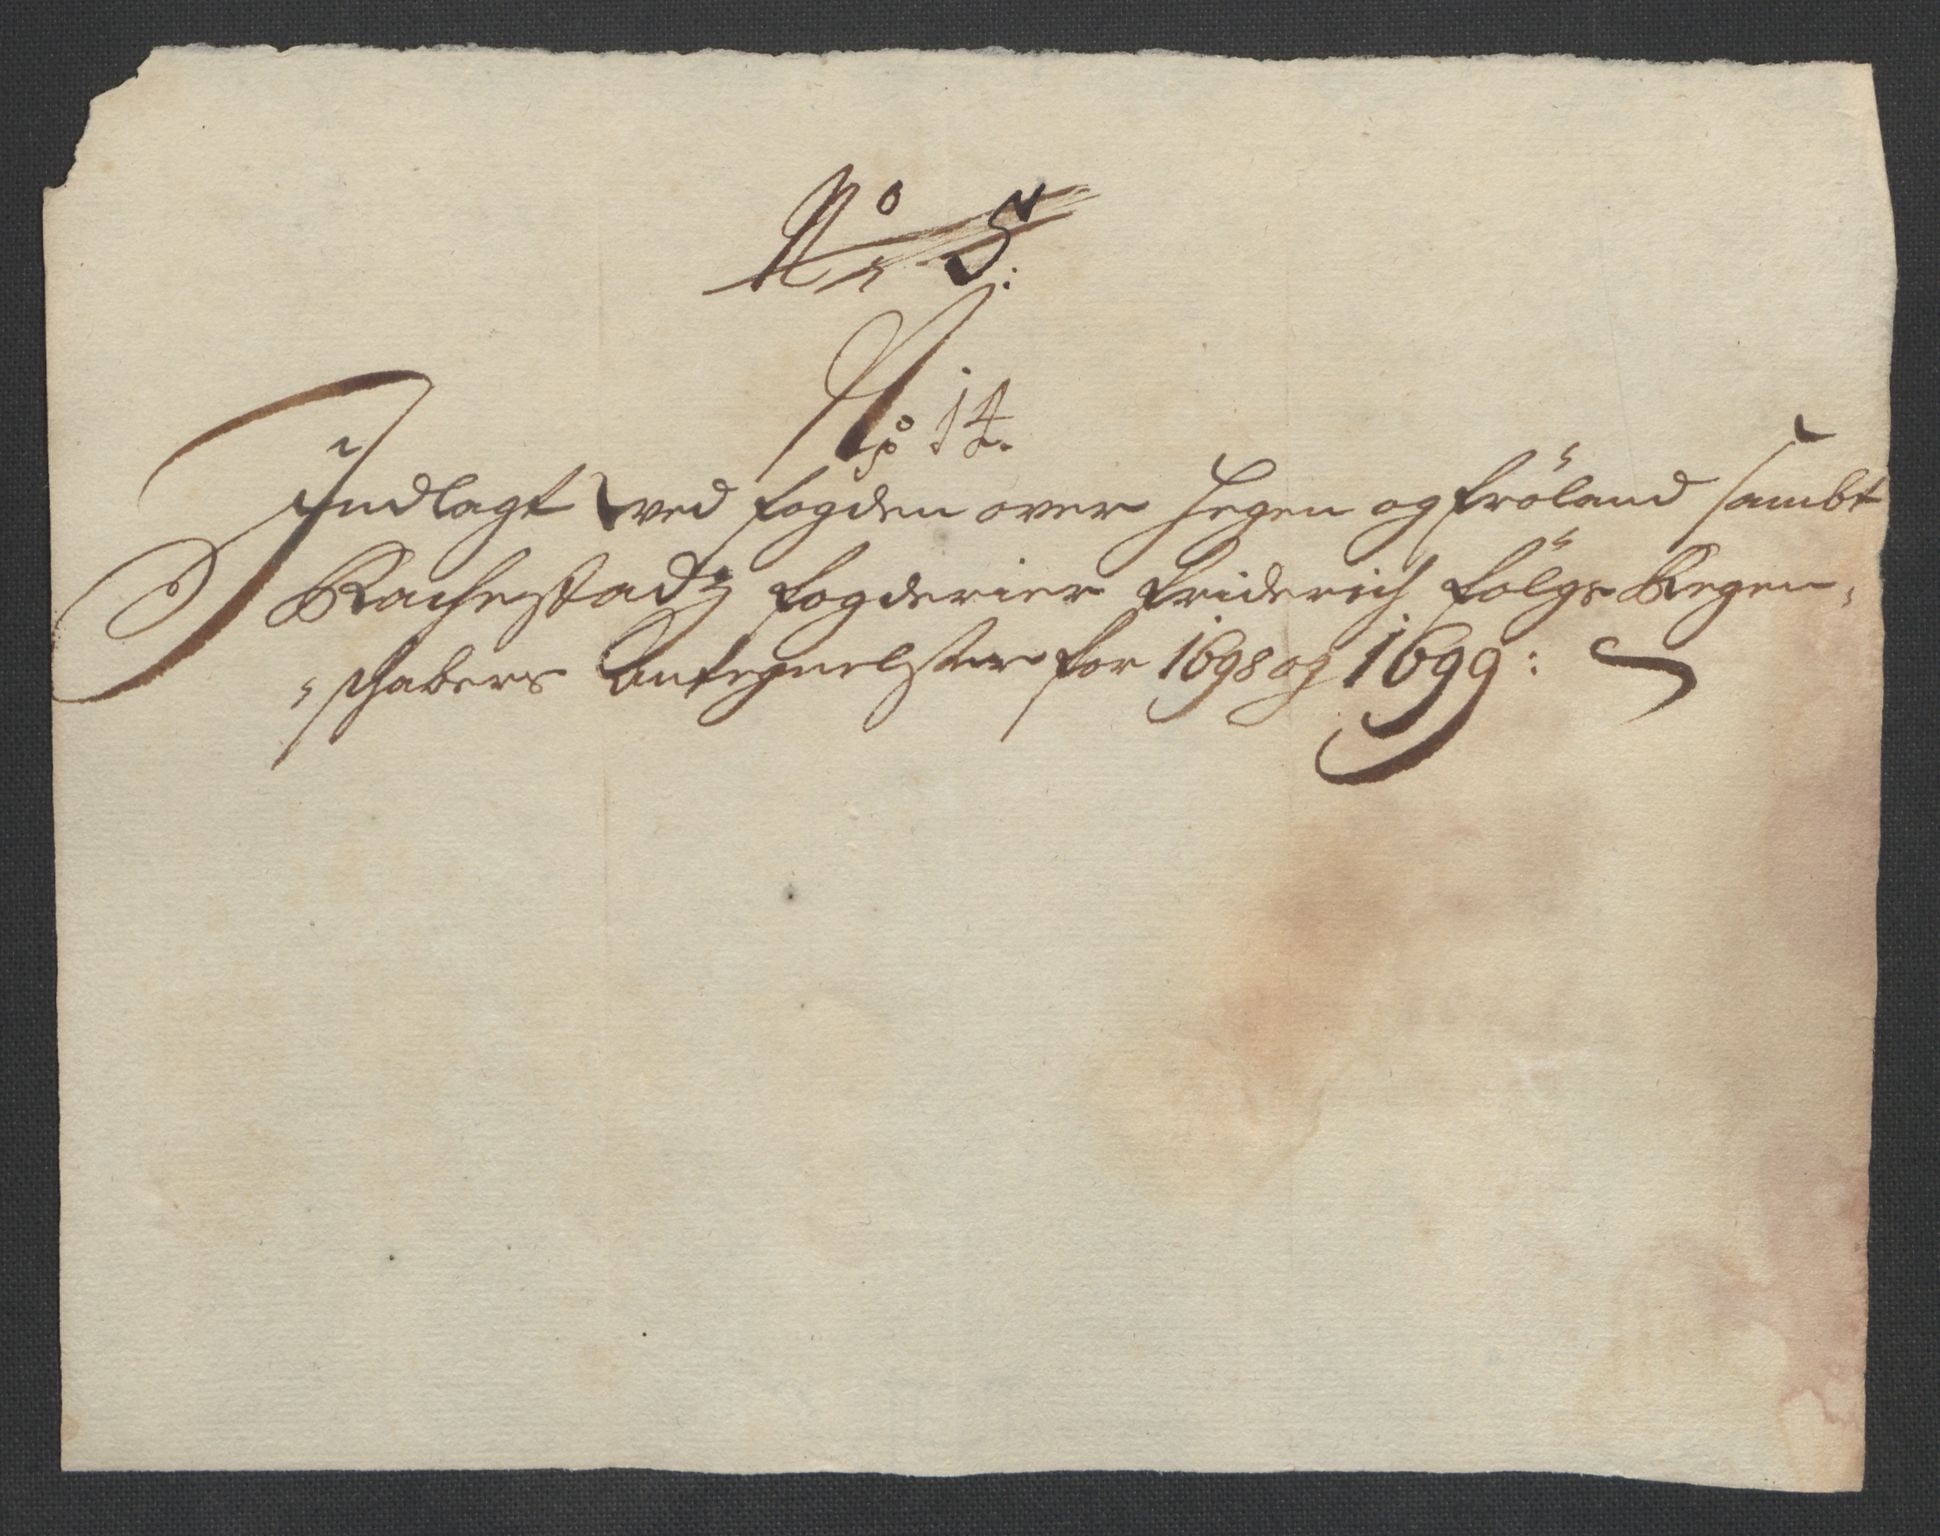 No 5:
No 14.
Indlagt ved fogden over Heggen og Fröland sambt
Rachestadz fogderier Friderich Fölgs Regen-
-schabers Antegnelster for 1698 og 1699: